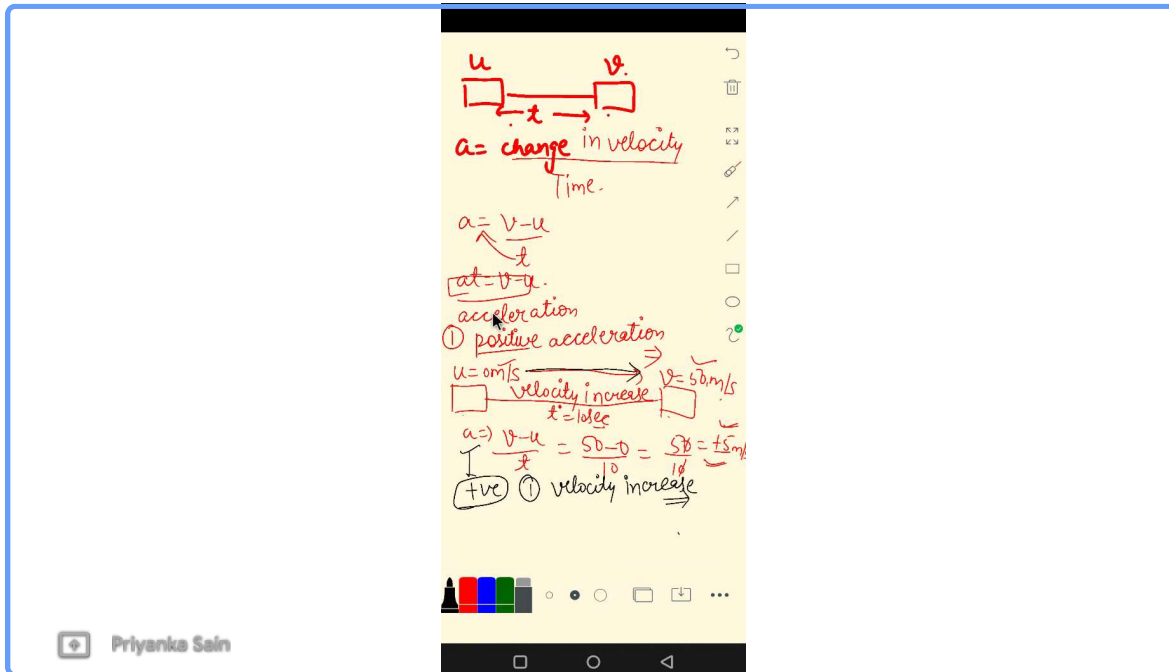 u v.
t
a = change in velocity
Time.
a = v-u
t
at = v-u.
acceleration
① positive acceleration
u = 0m/s v = 50m/s
velocity increase
t = 10sec
a => v-u = 50-0 = 50 = +5m/s
t 10 10
+ve ① velocity increase
Priyanka Sain